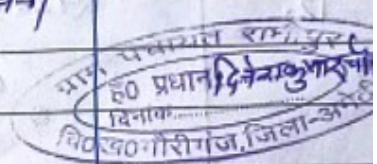 ग्राम पंचायत रामपुर
ह0 प्रधान दिनेश कुमार
दिनांक..............
वि0ख0गौरीगंज, जिला-अमेठी